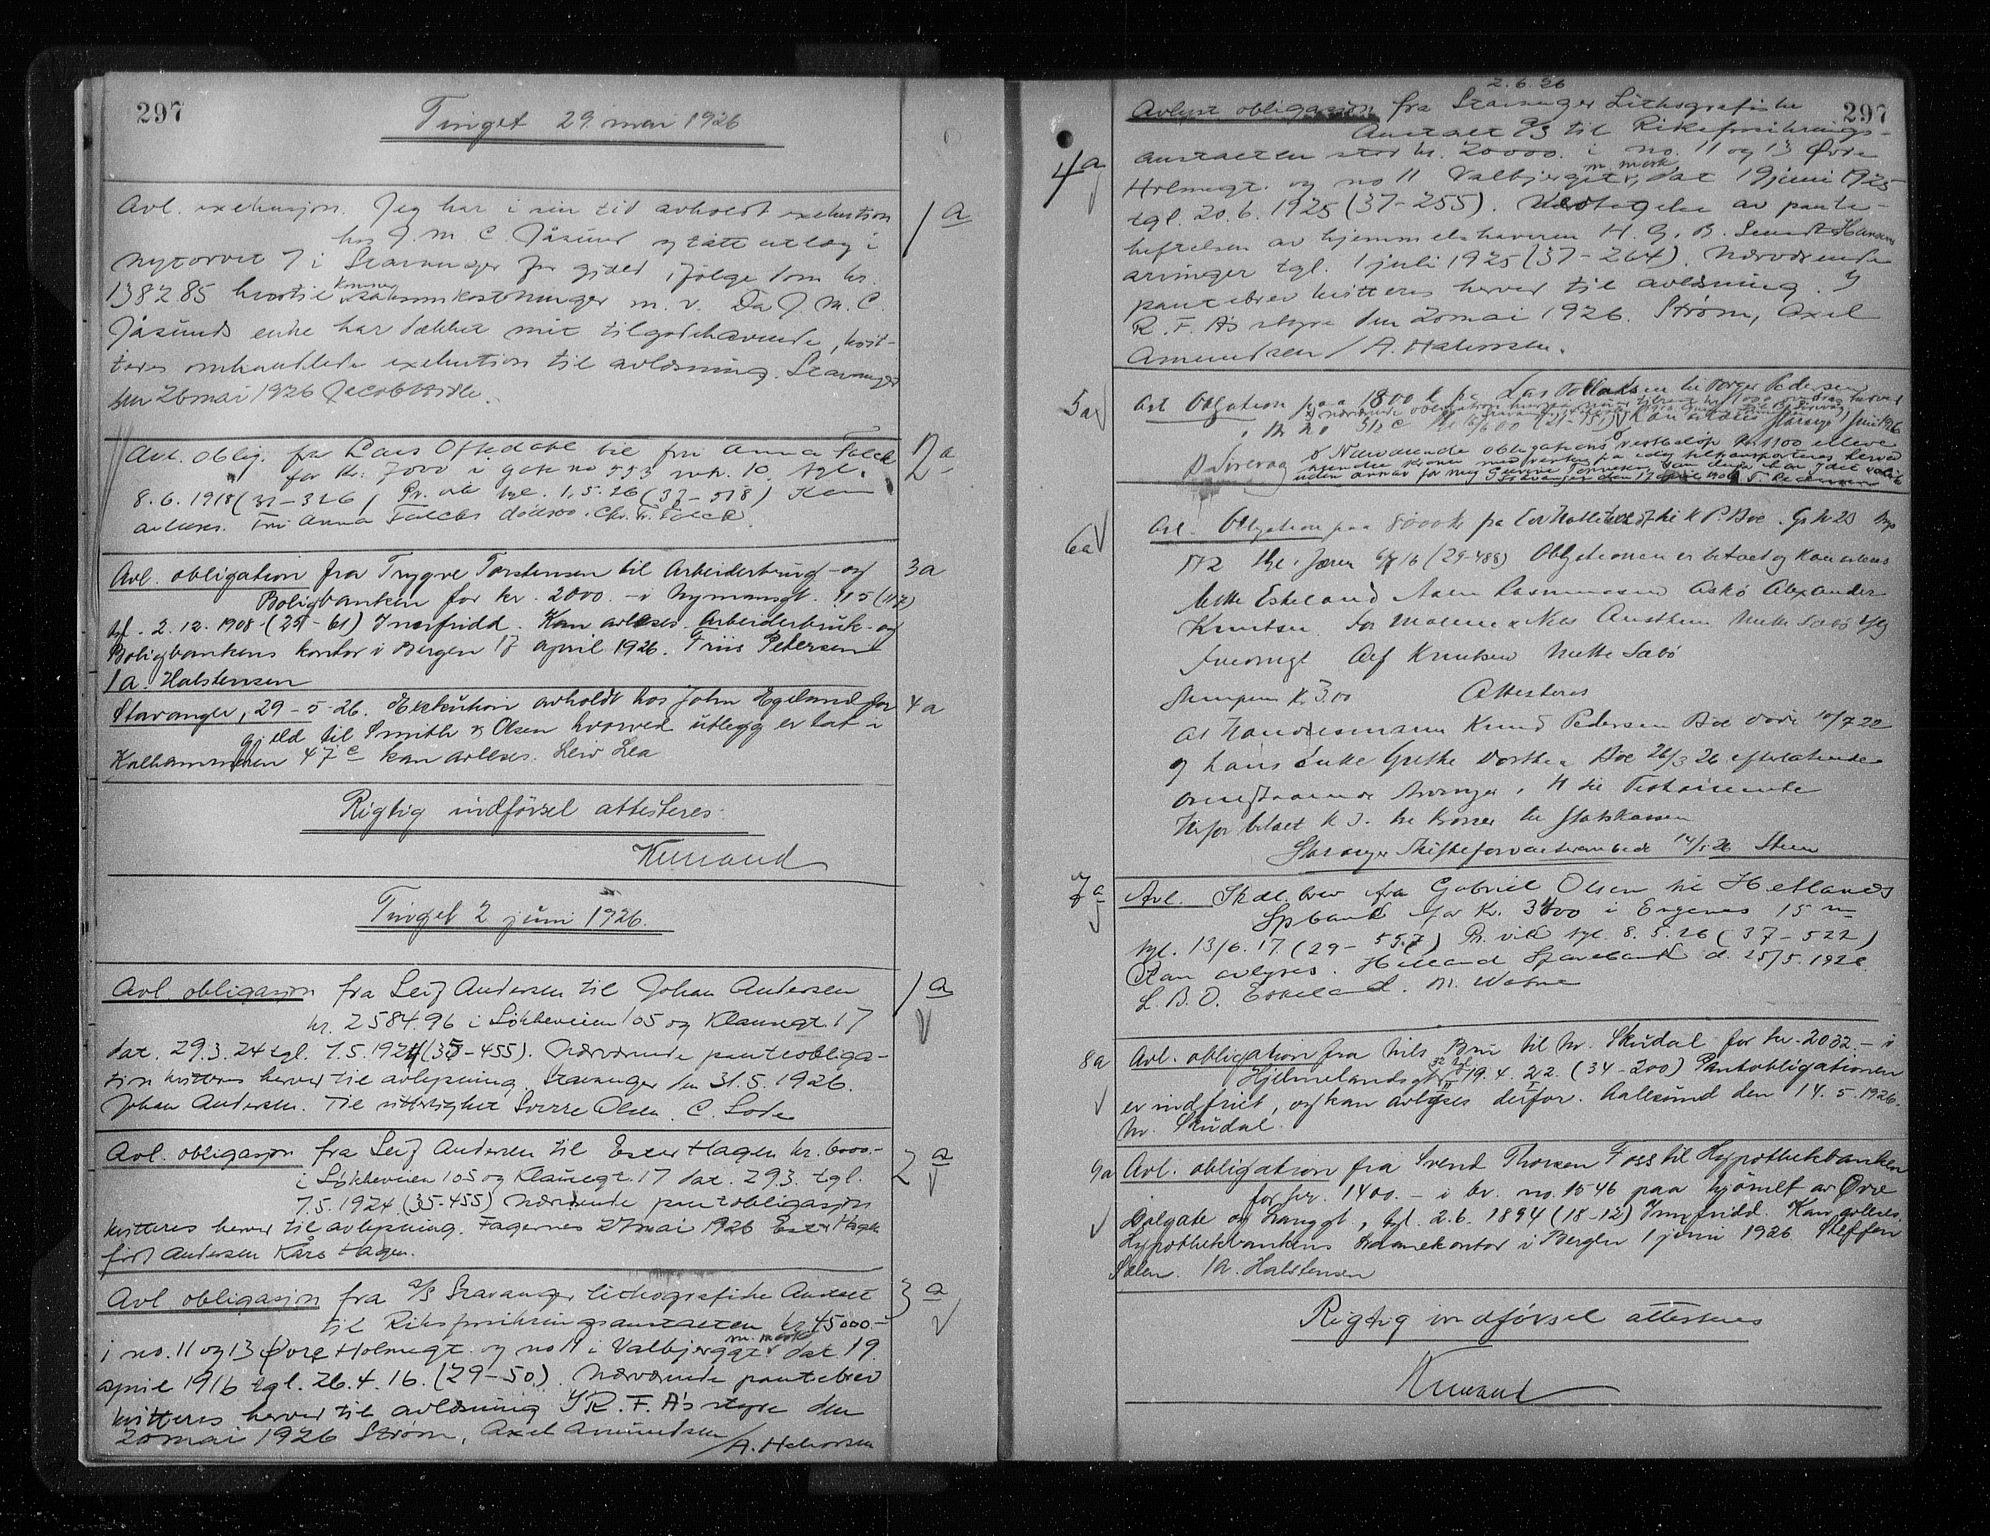 297
Tinget 29 mai 1926
Avl. exekusjon. Jeg har i sin tid avholdt exekution
hos J. M. C. Jåsund og tatt utlæg i
Nytorvet 7 i Stavanger for gjæld ifölge dom kr.
1382.85 hvortil kommer saksomkostninger m.v. Da J. M. C.
Jåsunds enke har dækket mit tilgodehavende, kvit-
teres omhandlede exekution til avlæsning. Stavanger
den 26 mai 1926 Jacob
1 a
Avl. oblig. fra Lars Oftedahl til fru Anna Falck
for kr. 7000 i gate no 553 mtr. 10. tgl.
8.6.1918 (31-326) Pr. vid tgl. 1.5.26 (37-518) Kan
avleses. Fru Anna Falcks dödsbo. Chr. F. Falck.
2 a
Avl. obligation fra Trygve Torstensen til Arbeiderbruk- og
Boligbanken for kr. 2000.- i Nymansgt. 115 (117)
tgl. 2.12.1908 (25-61) Innfridd. Kan avleses. Arbeiderbruk- og
Boligbankens kontor i Bergen 17 april 1926. Friis Petersen
/A. Halstensen
3a
Stavanger, 29-5-26. Exekution avholdt hos John Egeland for
gjeld til Smith & Olsen hvorved utlegg er tat i
Kalhammeren 47 c kan avleses. Lew Lea
4a
Rigtig indförsel attesteres
Tinget 2 juni 1926.
Avl. obligasjon fra Leif Andersen til Johan Andersen
kr. 2584.96 i Lökkeveien 105 og Klausegt. 17
dat. 29.3.24 tgl. 7.5.1924 (35-455). Nærværende panteobliga-
tion kvitteres herved til avlysning. Stavanger den 31.5.1926.
Johan Andersen. Til vitterlighet Sverre Olsen. C. Lode
1 a
Avl. obligasjon fra Leif Andersen til Ester Hagen kr. 6000.-
i Lökkeveien 105 og Klausegt. 17 dat. 29.3. tgl.
7.5.1924 (35-455) Nærværende pantobligasjon
kvitteres herved til avlysning. Fagernes 27 mai 1926 Ester Hagen
född Andersen Kåre Hagen.
2 a
Avl obligasjon fra A/S Stavanger lithografiske Anstalt
til Riksforsikringsanstalten kr 45000.-
i no. 11 og 13 Øvre Holmegt. og no 11 i Valbjerggt m. mere dat 19
april 1916 tgl. 26.4.16. (29-50). Nærværende pantebrev
kvitteres herved til avlæsning I R. F. A's styre den
20 mai 1926 Ström, Axel Amundsen
/A. Halvorsen
3 a
2.6.26
297
Avlyst obligasjon fra Stavanger Lithografiske
Anstalt A/S til Riksforsikrings-
anstalten stor kr. 20000. i no. 11 og 13 Øvre
Holmegt. og no 11 Valbjerget m. mere, dat 19 juni 1925
tgl. 20.6.1925 (37-255). Vedtagelse av pante-
heftelsen av hjemmelshaveren H. G. B. Sundt Hansens
arvinger tgl. 1 juli 1925 (37-264). Nærværende
pantebrev kvitteres herved til avlæsning. I
R. F. A's styre den 20 mai 1926. Ström, Axel
Amundsen / A. Halvorsen.
4 a
5a
Avl Obligation paa 1800 k fra
6a
Avl. Obligation paa 8000 k
572 tgl. Jæren 6/8 16 (29-488) Obligationen er betalt og kan avleses
Mette Eskeland Aasen Rasmussen Askö Alexander
Knutsen for Malene & Nils Austbøe Mette Sabö
Alf Knutsen Mette Sabö
Stempen k 3.00 Attesteres
At Handelsmann Knud Pedersen Boe döde 10/7 22
og hans Enke Grethe Dorthea Boe 26/3 26 efterlatende
ovenstaaende Arvinger. Testamente
Herfor betalt K 3. tre kroner til Statskassen
Stavanger Skifteforvalterembede 14/5 26
7 a
Avl. Skdl.brev fra Gabriel Olsen til Hetlands
Spbank for Kr. 3400 i Engenes 15
tgl. 13/6.17. (29-557) Pr. vid tgl. 8.5.26 (37-522)
Kan avlyses. Hetland Sparebank d. 25/5.1926.
L. B. O. Eskeland.
8a
Avl. obligation fra Nils Bru til N. Skudal for kr. 2032.- i
Hjelmelandsgt 19.4.22. (34-200) Pantobligationen
er indfriet, og kan avleses derfor. Aalesund den 14.5.1926.
N. Skudal.
9a
Avl. obligation fra Svend Thorsen Foss til Hypothekbanken
for kr. 1400.- i br. no. 1546 paa hjörnet av Øvre
Dalgate og Langgt, tgl. 2.6.1894 (18-12) Innfridd. Kan avleses.
Hypothekbankens Laanekontor i Bergen 1 juni 1926 Steffen
Salen. /A. Halstensen
Rigtig indförsel attesteres